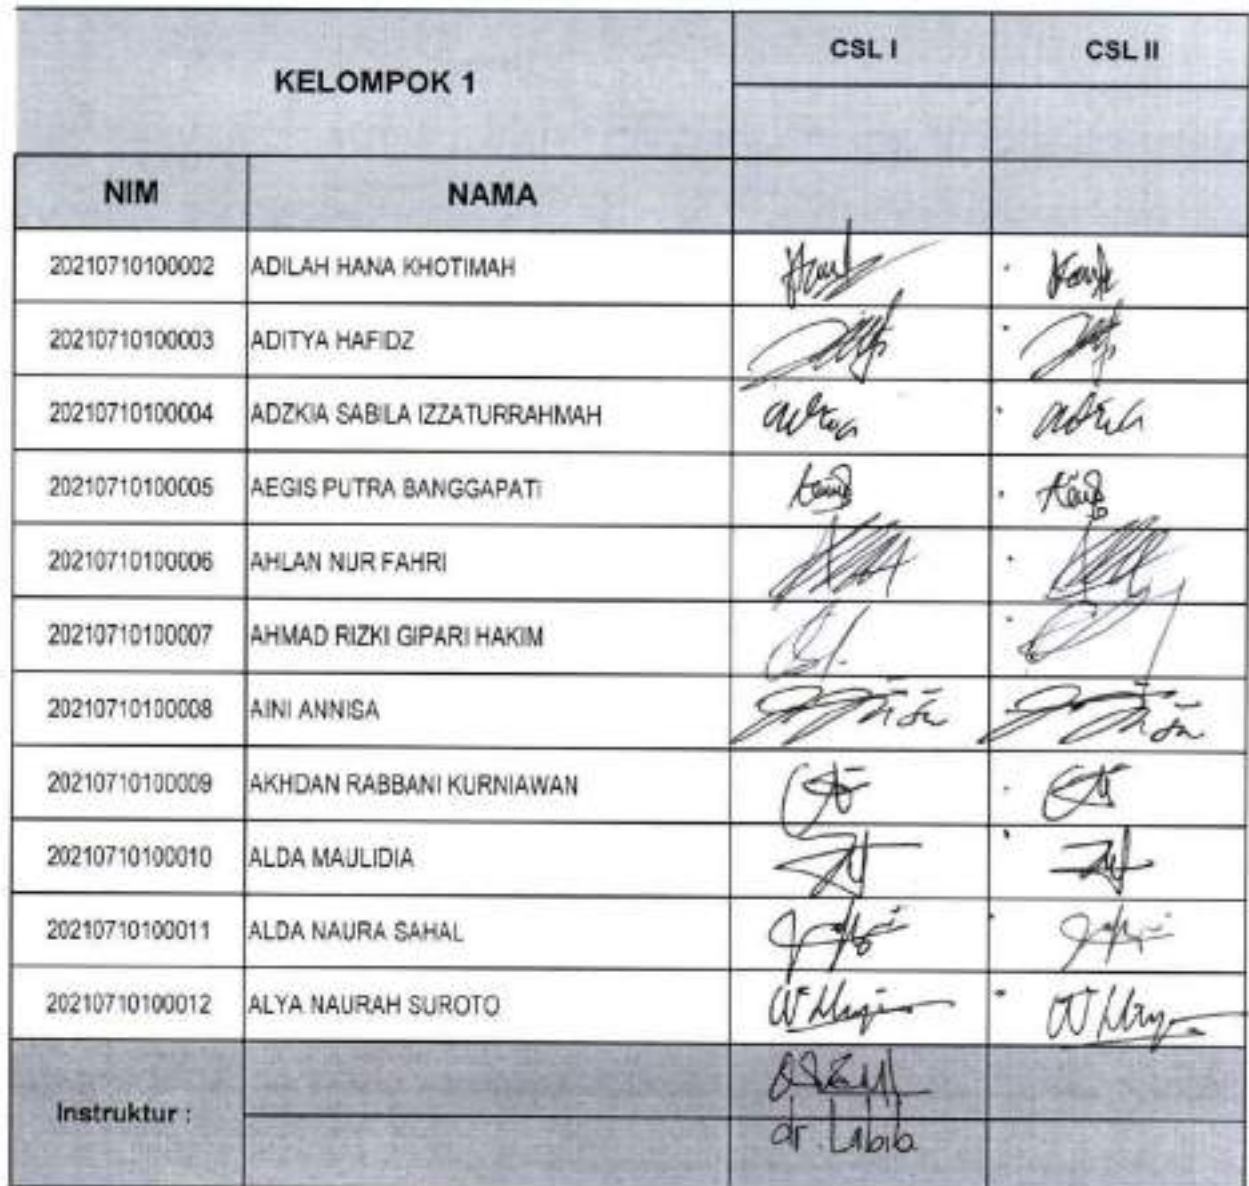 KELOMPOK 1
CSL I
CSL II
NIM
NAMA
20210710100002 ADILAH HANA KHOTIMAH
20210710100003 ADITYA HAFIDZ
20210710100004 ADZKIA SABILA IZZATURRAHMAH
20210710100005 AEGIS PUTRA BANGGAPATI
20210710100006 AHLAN NUR FAHRI
20210710100007 AHMAD RIZKI GIPARI HAKIM
20210710100008 AINI ANNISA
20210710100009 AKHDAN RABBANI KURNIAWAN
20210710100010 ALDA MAULIDIA
20210710100011 ALDA NAURA SAHAL
20210710100012 ALYA NAURAH SUROTO
Instruktur :
dr. Labib